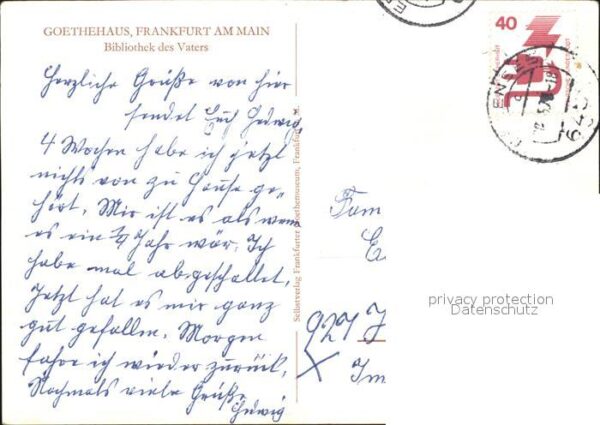 GOETHEHAUS, FRANKFURT AM MAIN
Bibliothek des Vaters
Herzliche Grüße von hier
sendet Euch Hedwig
4 Wochen habe ich jetzt
nichts von zu Hause ge-
hört. Mir ist es als wenn
es ein ¼ Jahr wär. Ich
habe mal abgeschaltet.
Jetzt hat es mir ganz
gut gefallen. Morgen
fahre ich wieder zurück.
Nochmals viele Grüße
Hedwig
Selbstverlag Frankfurter Goethemuseum, Frankfurt
40
Fam
E
privacy protection
Datenschutz
Im